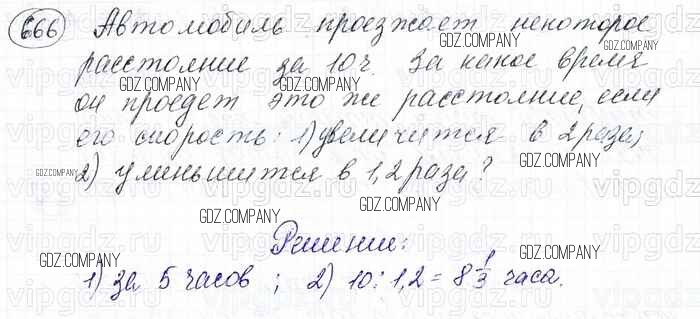 666 Автомобиль проезжает некоторое
GDZ.COMPANY GDZ.COMPANY
расстояние за 10 ч. За какое время
GDZ.COMPANY GDZ.COMPANY
он проедет это же расстояние, если
его скорость: 1) увеличится в 2 раза;
GDZ.COMPANY GDZ.COMPANY
2) уменьшится в 1,2 раза?
GDZ.COMPANY GDZ.COMPANY
Решение:
GDZ.COMPANY GDZ.COMPANY
1) за 5 часов ; 2) 10 : 1,2 = 8 1/3 часа.